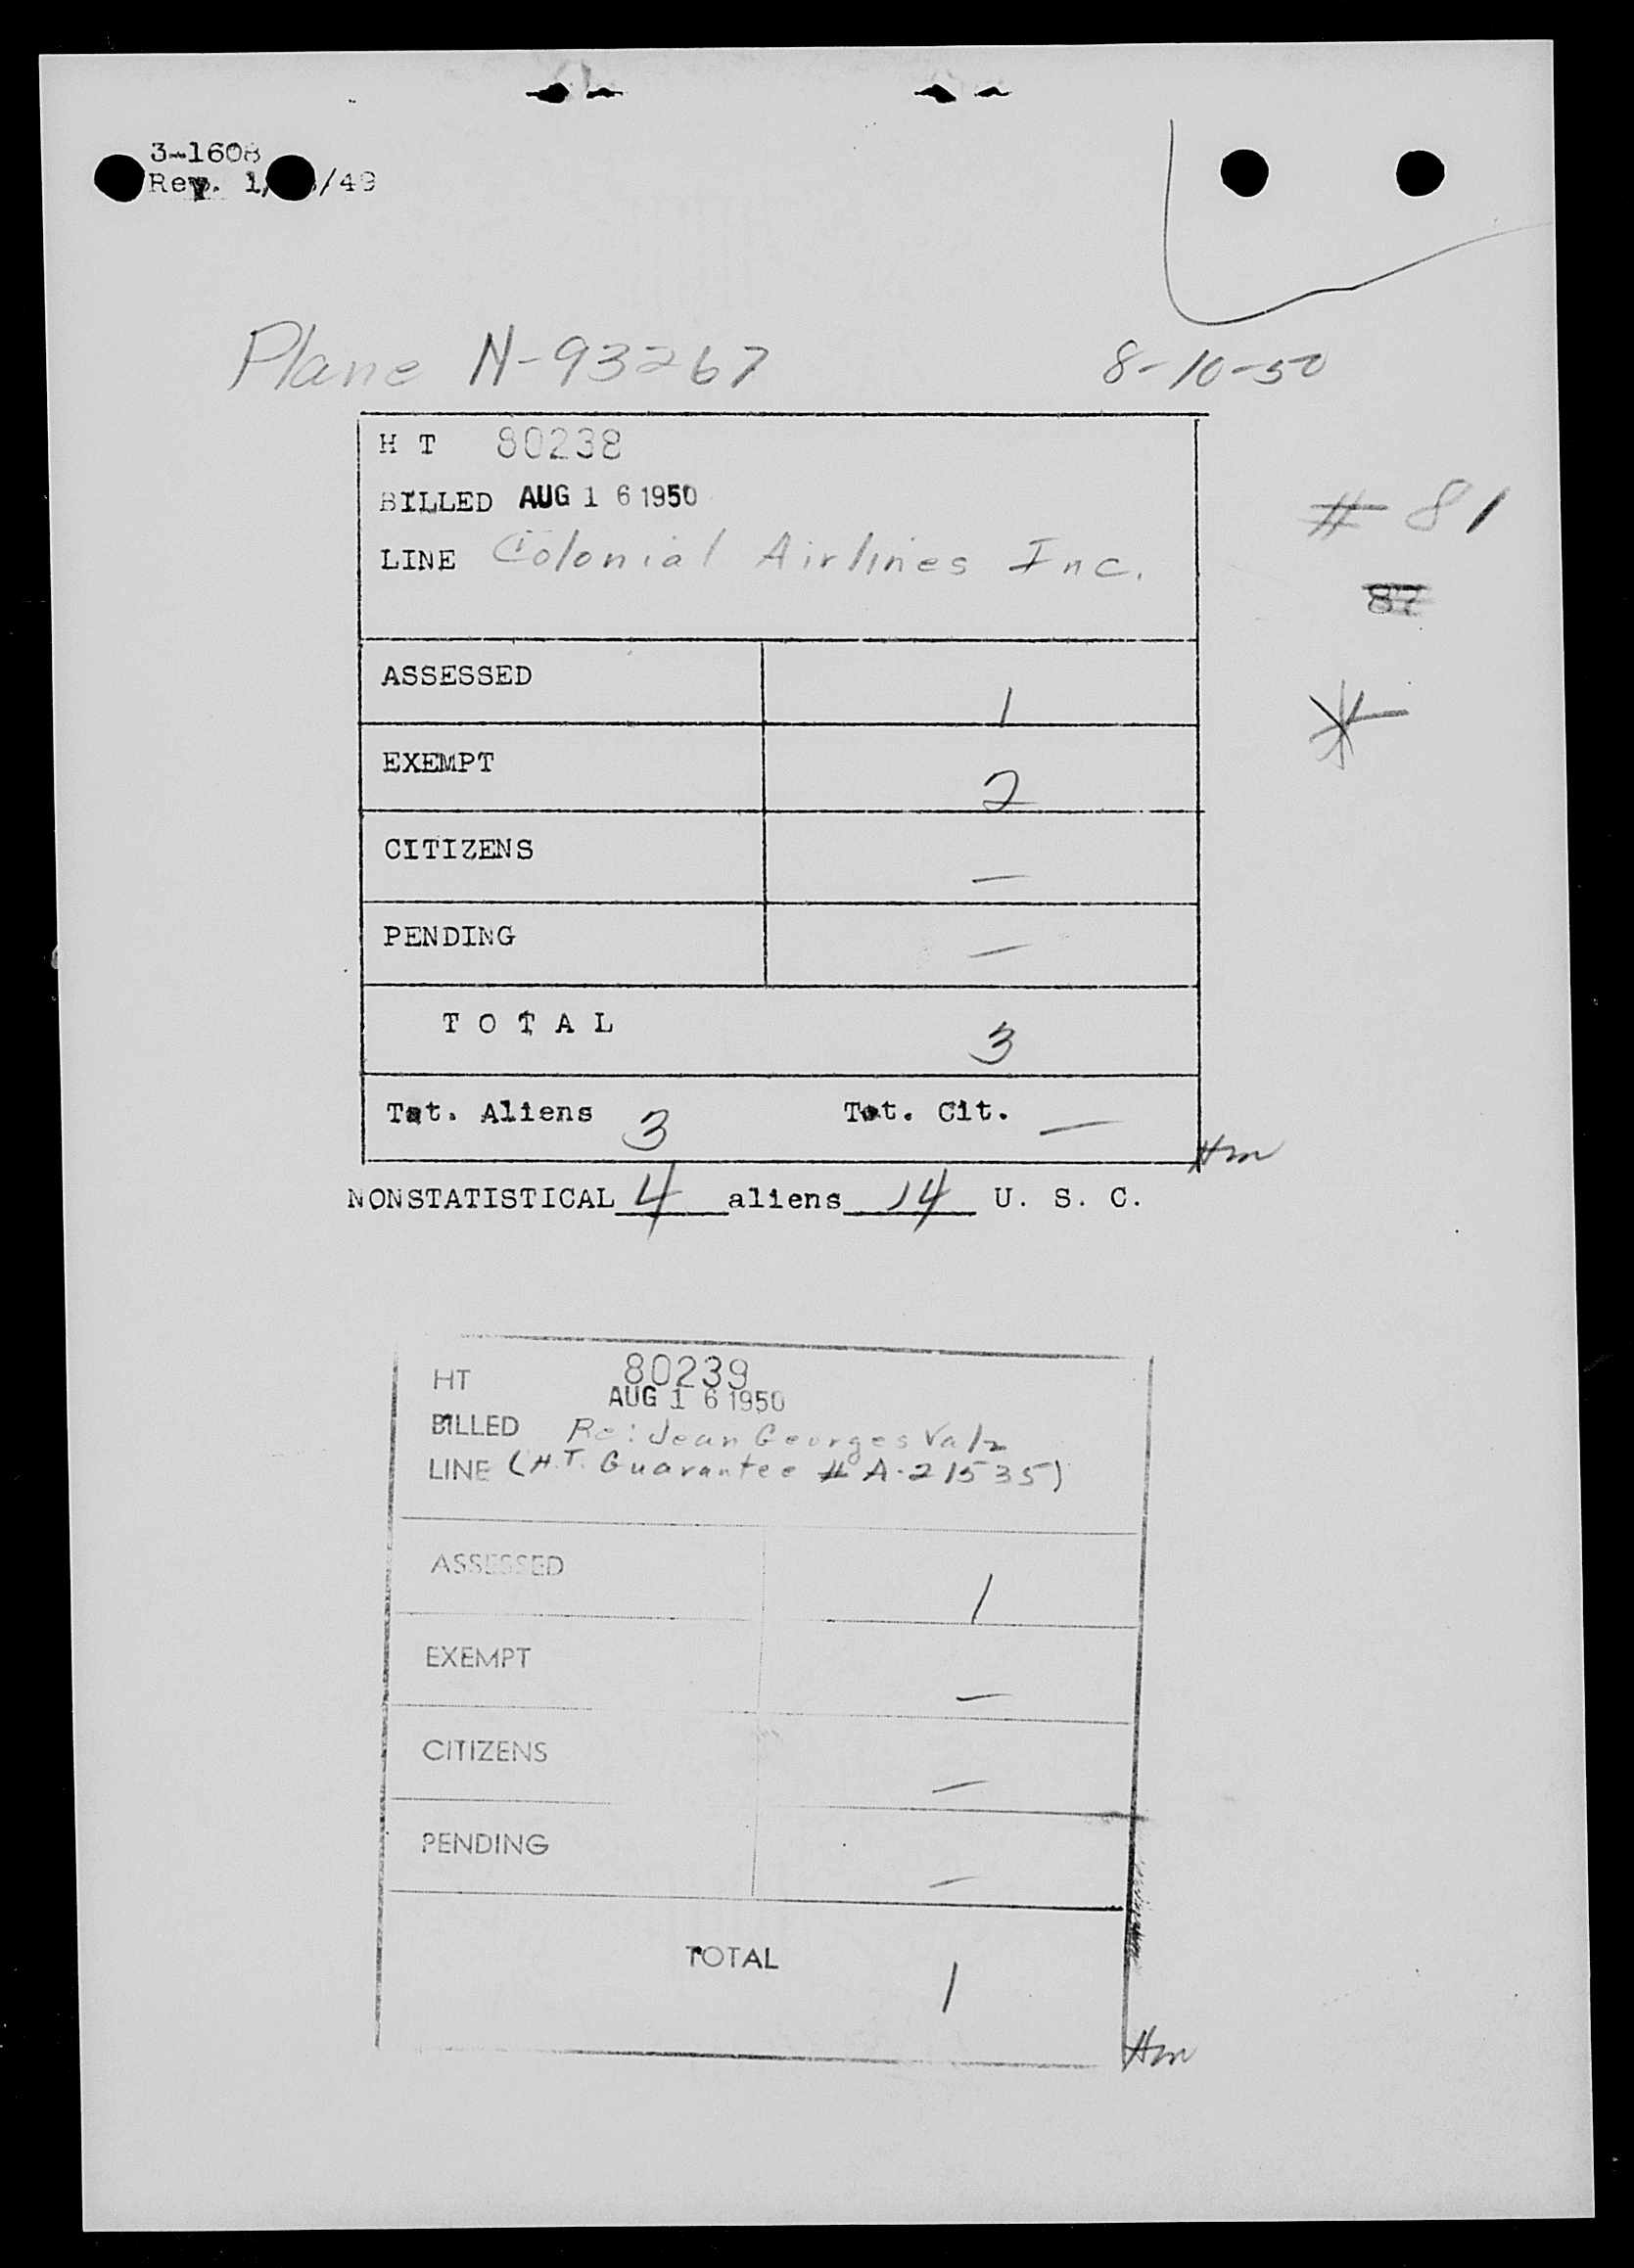 3-1608
Rev. 1/ /49
Plane N-93267 8-10-50
H T 80238
BILLED AUG 16 1950
LINE Colonial Airlines Inc.
# 81
87
ASSESSED 1
EXEMPT 2
CITIZENS —
PENDING —
T O T A L 3
Tot. Aliens 3 Tot. Cit. —
Hm
NONSTATISTICAL 4 aliens 14 U. S. C.
HT 80239
AUG 16 1950
BILLED Re: Jean Georges Valz
LINE (H.T. Guarantee # A-21535)
ASSESSED 1
EXEMPT —
CITIZENS —
PENDING —
TOTAL 1
Hm